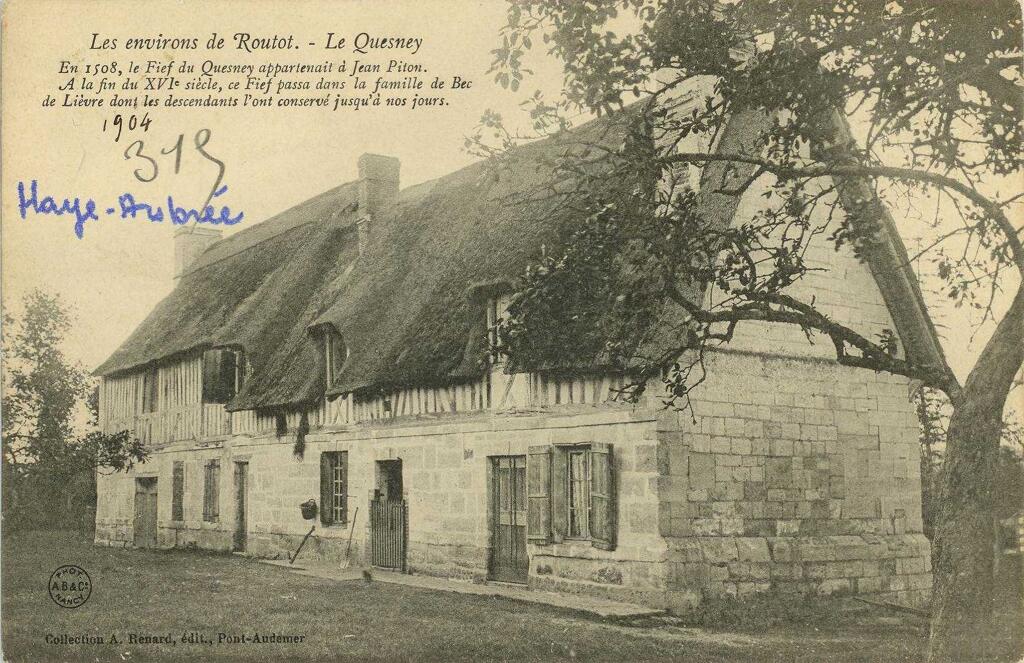 Les environs de Routot. - Le Quesney
En 1508, le Fief du Quesney appartenait à Jean Piton.
A la fin du XVIe siècle, ce Fief passa dans la famille de Bec
de Lièvre dont les descendants l'ont conservé jusqu'à nos jours.
1904
319
Haye-Aubrée
PHOT
A.B & Cie
NANCY
Collection A. Renard, édit., Pont-Audemer